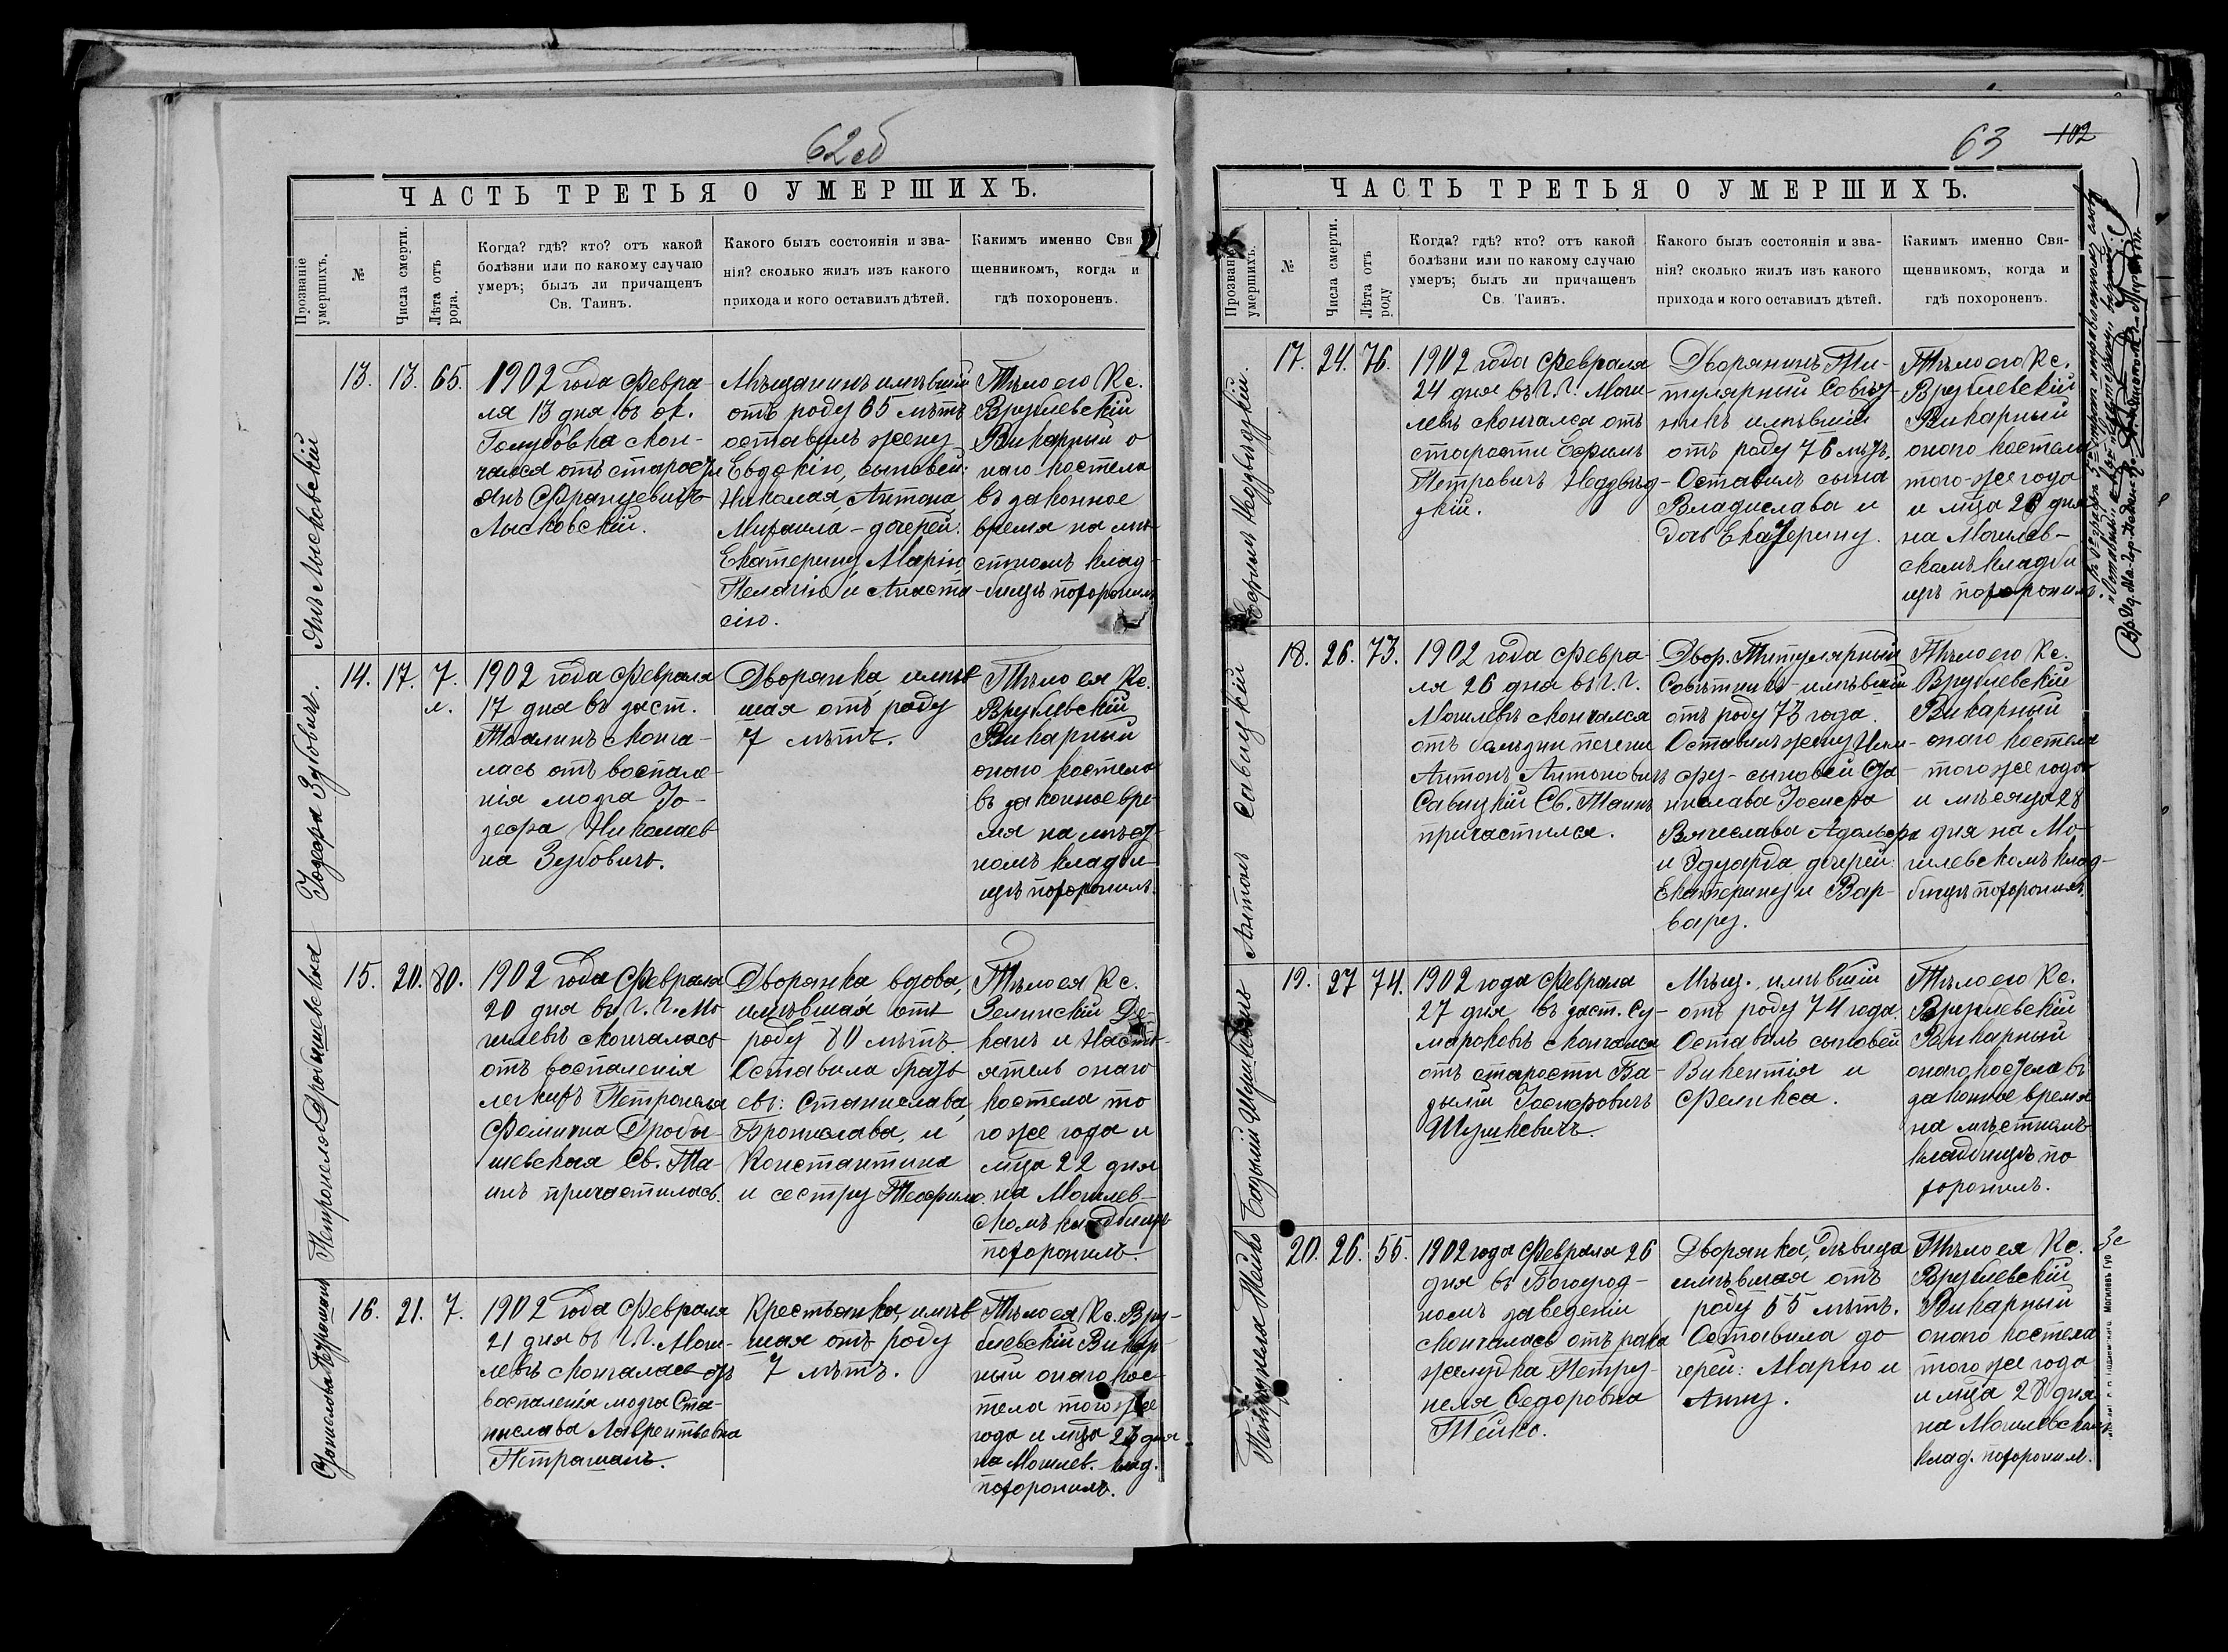 62об
ЧАСТЬ ТРЕТЬЯ О УМЕРШИХЪ.
Прозваніе умершихъ.
№
Числа смерти.
Лѣта отъ рода.
Когда? гдѣ? кто? отъ какой
болѣзни или по какому случаю
умеръ; былъ ли причащенъ
Св. Таинъ.
Какого былъ состоянія и зва-
нія? сколько жилъ изъ какого
прихода и кого оставилъ дѣтей.
Какимъ именно Свя
щенникомъ, когда и
гдѣ похороненъ.
Янъ Лысковскій
13. 13. 65.
1902 года Февра-
ля 13 дня въ ок.
Голубовка скон-
чался отъ старости
Янъ Францевичъ
Лысковскій.
Мѣщанинъ имѣвшій
отъ роду 65 лѣтъ
оставилъ жену
Евдокію, сыновей:
Николая, Антона,
Михаила - дочерей:
Екатерину, Марію
Пелагію и Анаста
сію.
Тѣло его Кс.
Врублевскій
Викарный о
наго костела
въ законное
время на мѣ-
стномъ клад-
бищѣ похоронилъ
Іозефа Зубовичъ.
14. 17. 7.
л.
1902 года Февраля
17 дня въ заст.
Тоалинъ сконча-
лась отъ воспале-
нія мозга Іо-
зефа Николаев
на Зубовичъ.
Дворянка имѣв
шая отъ роду
7 лѣтъ.
Тѣло ея Кс.
Врублевскій
Викарный
онаго костела
въ законное вре-
мя на мѣст-
номъ кладби-
щѣ похоронилъ.
Петронеля Дробышевская
15. 20. 80.
1902 года Февраля
20 дня въ Г. Г. Мо
гилевѣ скончалась
отъ воспаленія
легкихъ Петронеля
Фомина Дробы-
шевская Св. Та-
инъ причастилась.
Дворянка вдова,
имѣвшая отъ
роду 80 лѣтъ.
Оставила брать-
евъ: Станислава,
Бронислава, и
Константина
и сестру Теофилю
Тѣло ея Кс.
Зелинскій Де-
канъ и Насто-
ятель онаго
костела то
го же года и
мца 22 дня
на Могилев-
скомъ кладбищѣ
похоронилъ.
Станислава Петрашань
16. 21. 7.
1902 года Февраля
21 дня въ Г. Г. Моги-
левѣ скончалась отъ
воспаленія мозга Ста-
нислава Лаврентьевна
Петрашань.
Крестьянка, имѣв
шая отъ роду
7 лѣтъ.
Тѣло ея Кс. Вру-
блевскій Викар-
ный онаго кос-
тела того же
года и мца 23 дня
на Могилев. клад.
похоронилъ.
63 102
ЧАСТЬ ТРЕТЬЯ О УМЕРШИХЪ.
Прозваніе умершихъ.
№
Числа смерти.
Лѣта отъ роду
Когда? гдѣ? кто? отъ какой
болѣзни или по какому случаю
умеръ; былъ ли причащенъ
Св. Таинъ.
Какого былъ состоянія и зва-
нія? сколько жилъ изъ какого
прихода и кого оставилъ дѣтей.
Какимъ именно Свя-
щенникомъ, когда и
гдѣ похороненъ.
Ефимъ Недзвѣдзкій.
17. 24. 76.
1902 года Февраля
24 дня въ Г. Г. Моги-
левѣ скончался отъ
старости Ефимъ
Петровичъ Недзвѣд-
зкій.
Дворянинъ Ти-
тулярный Совѣт
никъ имѣвшій
отъ роду 76 лѣтъ.
Оставилъ сына
Владислава и
дочь Екатерину.
Тѣло его Кс.
Врублевскій
Викарный
онаго костела
того-же года
и мца 26 дня
на Могилев-
скомъ кладби
щѣ похоронилъ.
Антонъ Савицкій
18. 26. 73.
1902 года Февра-
ля 26 дня въ Г. Г.
Могилевѣ скончался
отъ болѣзни печени
Антонъ Антоновичъ
Савицкій Св. Таинъ
причастился.
Двор. Титулярный
Совѣтникъ - имѣвшій
отъ роду 73 года.
Оставилъ жену Ним-
фу - сыновей Ста-
нислава Іосифа
Вячеслава Адольфа
и Эдуарда дочерей:
Екатерину и Вар-
вару.
Тѣло его Кс.
Врублевскій
Викарный
онаго костела
того же года
и мѣсяца 28
дня на Мо-
гилевскомъ клад-
бищѣ похоронилъ.
Базылій Шушкевичъ
19. 27 74.
1902 года Февраля
27 дня въ заст. Су-
мароковъ скончался
отъ старости Ба-
зылій Іосифовичъ
Шушкевичъ.
Мѣщ. имѣвшій
отъ роду 74 года.
Оставилъ сыновей
Викентія и
Феликса.
Тѣло его Кс.
Врублевскій
Викарный
онаго костела въ
законное время
на мѣстномъ
кладбищѣ по
хоронилъ.
Петрунеля Тейко
20. 26. 55.
1902 года Февраля 26
дня въ Богоугод-
номъ заведеніи
скончалась отъ рака
желудка Петру-
неля Федоровна
Тейко.
Дворянка, дѣвица
имѣвшая отъ
роду 55 лѣтъ.
Оставила до
черей: Марію и
Анну.
Тѣло ея Кс.
Врублевскій
Викарный
онаго костела
того же года
и мца 28 дня
на Могилевскомъ
клад. похоронилъ.